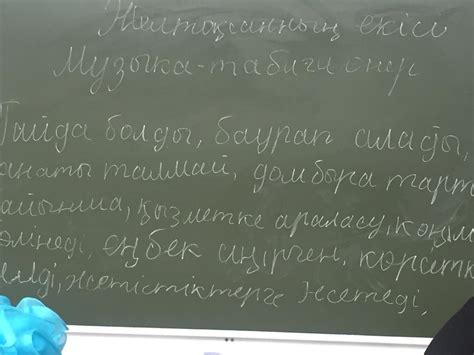 Желтоқсанның екісі
Музыка-табиғи өнер
Пайда болды, баурап алады,
қанаты талмай, домбыра тарт
айынша, қызметке араласу, көңіл
бөлінеді, еңбек сіңірген, көрсетк
елді, жетістіктерге жетеді,